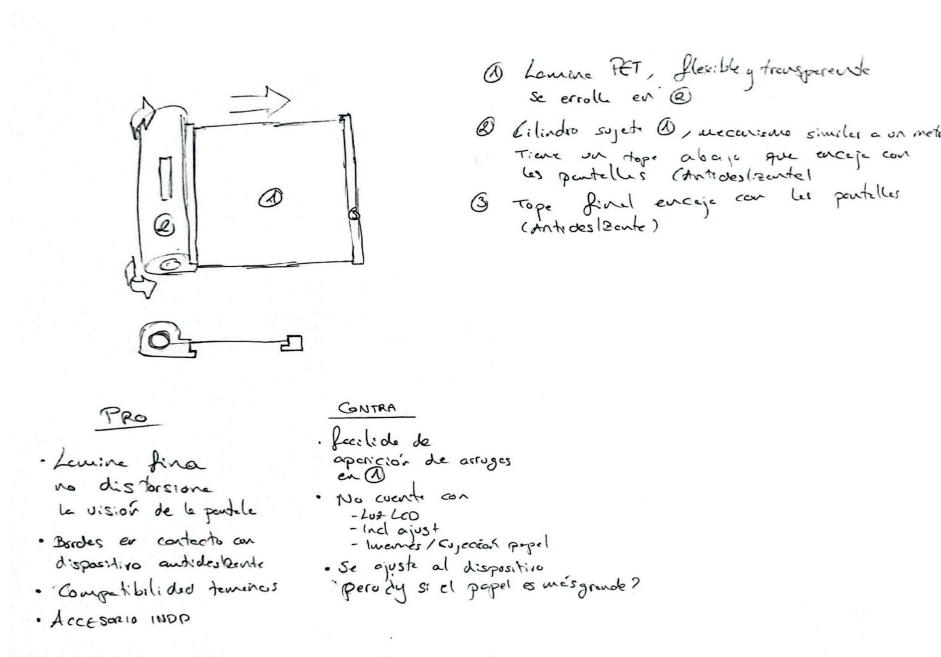 ① Lamina PET, flexible y transparente
se enrolla en ②
② Cilindro sujeta ①, mecanismo similar a un metr
Tiene un tope abajo que encaja con
las pantallas (Antideslizante)
③ Tope final encaja con las pantallas
(Antideslizante)
①
②
③
PRO
• Lamina fina
no distorsiona
la visión de la pantalla
• Bordes en contacto con
dispositivo antideslizante
• Compatibilidad tamaños
• ACCESORIO INDP
CONTRA
• facilidad de
aparición de arrugas
en ①
• No cuenta con
- Luz LCD
- Incl ajust
- Imanes / Sujeción papel
• Se ajusta al dispositivo
pero ¿y si el papel es más grande?